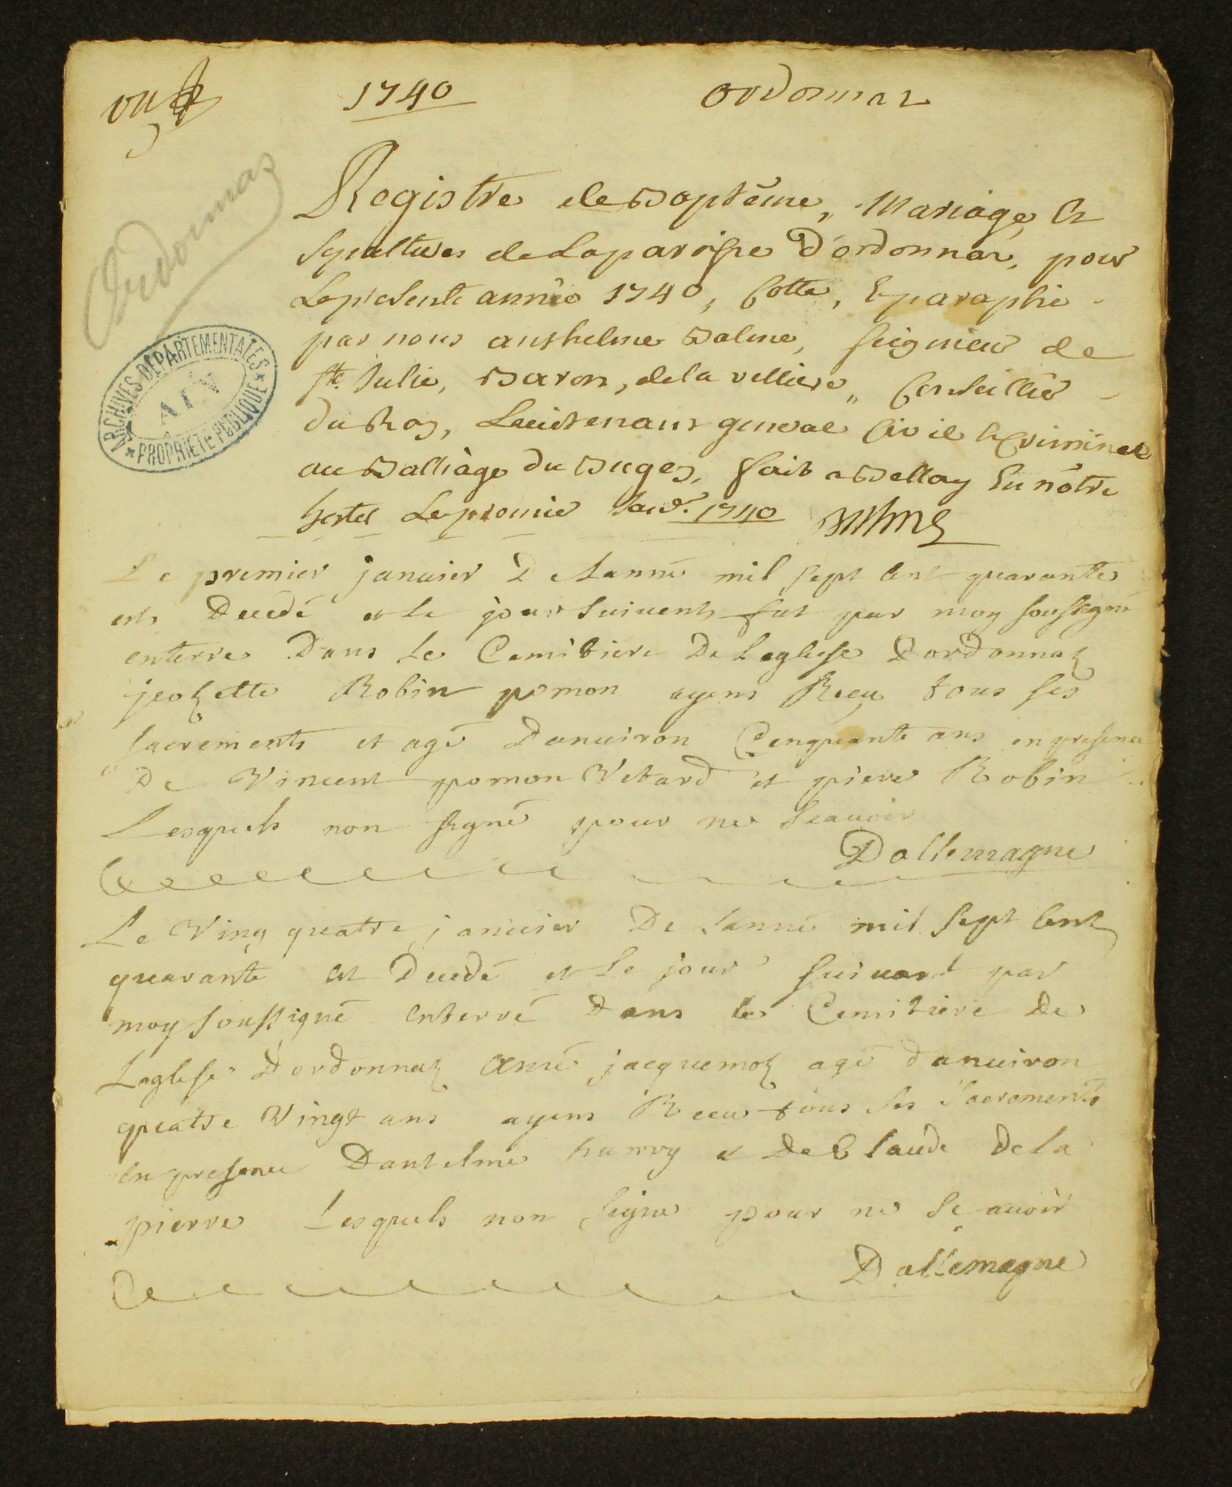 1740
ordonnaz
Ordonnaz
Registre de Baptême, Mariage et
Sepultures de La paroisse D'ordonnaz, pour
La presente année 1740, Cotte, et paraphé
par nous anthelme Balme, seigneur de
Ste Julie, Baron, de la velliere, Conseillier
du Roy, Lieutenant general Civil et Criminel
au Balliage du Bugey, fait a Belley En nôtre
hostel Le premier Janv. 1740
ARCHIVES DEPARTEMENTALES
AIN
PROPRIETE PUBLIQUE
Le premier januier De Lanné mil sept Cent quarante
est Decedé et Le jour suivent fut par moy soussigné
enterré Dans Le Cemitiere De Leglise Dordonnaz
jeozette Robin pomon ayens Reçu tous ses
sacrements et agé Danuiron Cenquante ans en presence
De Vincent pomon Vetard et pierre Robin
Lesquels non signé pour ne Scauoir
Dallemagne
Le Ving quatre januier De Lanné mil sept Cent
quarante est Decedé et Le jour suiuant par
moy soussigné enterré Dans Le Cemitiere De
Leglise Dordonnaz Aimé jacquemoz agé danuiron
quatre Vingt ans ayens Receu tous ses sacrements
en presence Dantelme hunroy et De Claude De la
pierre Lesquels non signé pour ne Scauoir
Dallemagne